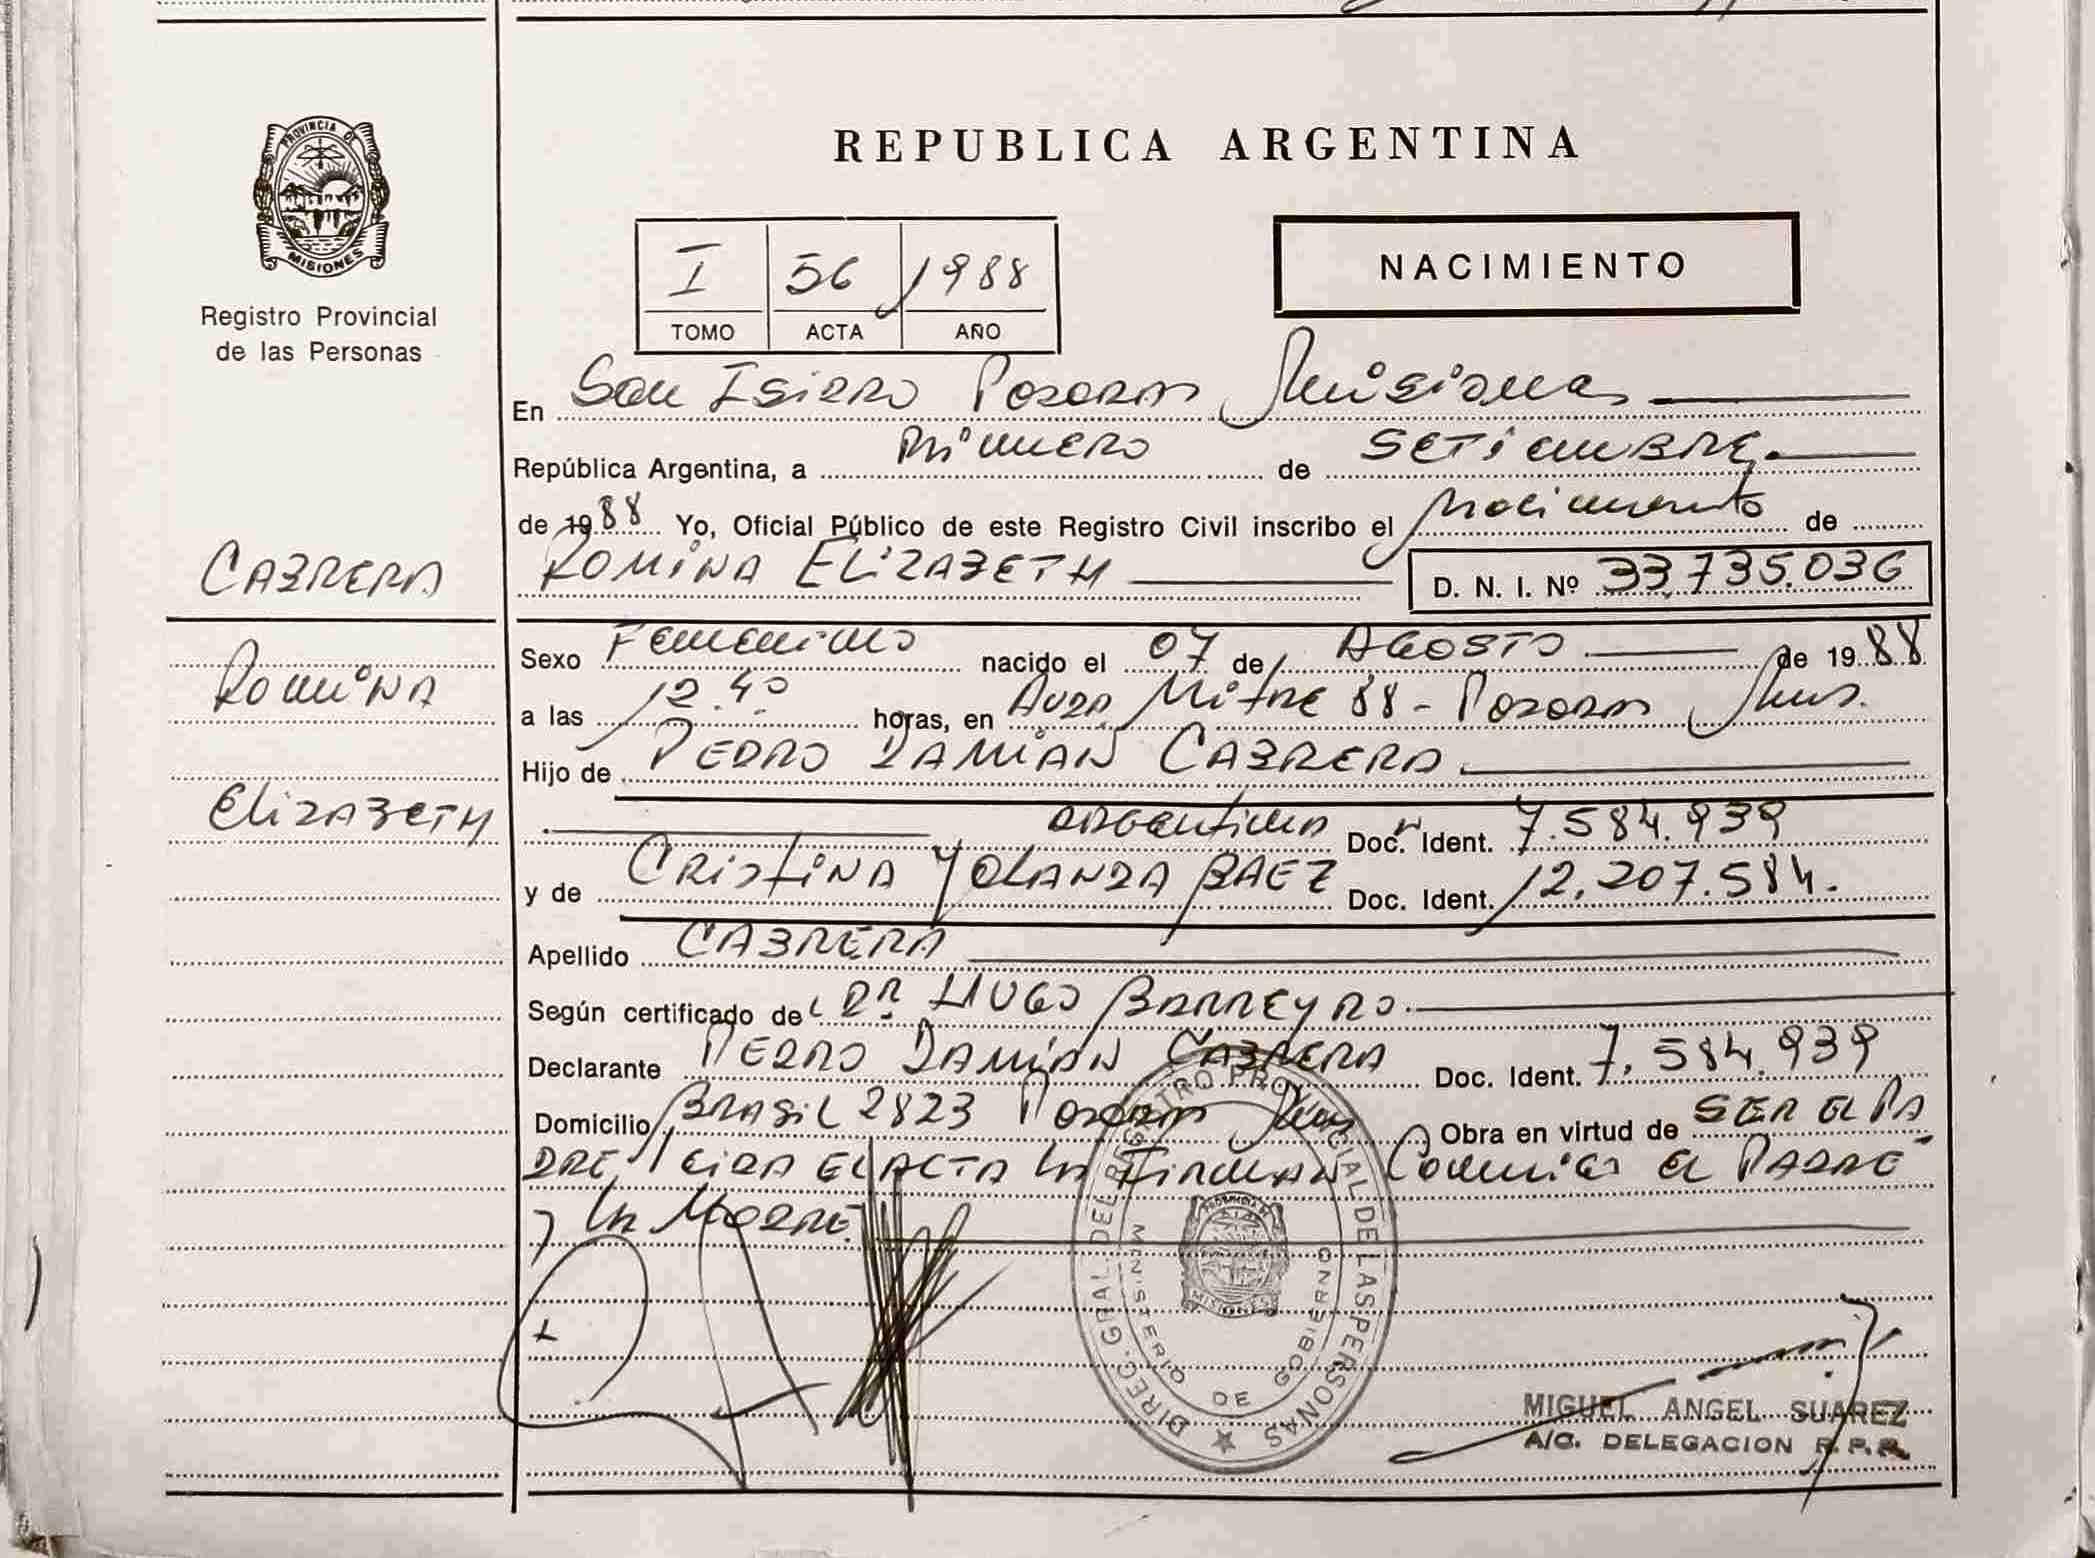 PROVINCIA DE
MISIONES
Registro Provincial
de las Personas
CABRERA
ROMINA
ELIZABETH
REPUBLICA ARGENTINA
I 56 1988
TOMO ACTA AÑO
NACIMIENTO
En San Isidro Posadas Misiones
República Argentina, a Primero de SETIEMBRE.
de 1988 Yo, Oficial Público de este Registro Civil inscribo el Nacimiento de
ROMINA ELIZABETH D. N. I. Nº 33.735.036
Sexo Femenino nacido el 07 de AGOSTO de 1988
a las 12.40 horas, en Avda Mitre 88 - Posadas Mns.
Hijo de PEDRO DAMIAN CABRERA
argentina Doc. Ident. 7.584.939
y de CRISTINA YOLANDA BAEZ Doc. Ident. 12.207.584.
Apellido CABRERA
Según certificado de DR HUGO BARREYRO.
Declarante PEDRO DAMIAN CABRERA Doc. Ident. 7.584.939
Domicilio BRASIL 2823 Posadas Mns Obra en virtud de SER EL PA
DRE LEIDA EL ACTA LA FIRMAN Conmigo EL PADRE
y LA MADRE
DIREC. GRAL. DEL REGISTRO PROVINCIAL DE LAS PERSONAS
MINISTERIO DE GOBIERNO
MISIONES
MIGUEL ANGEL SUAREZ
A/C. DELEGACION R.P.P.